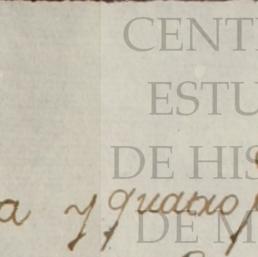 CENT
ESTU
DE HIS
DE M
a y quatro